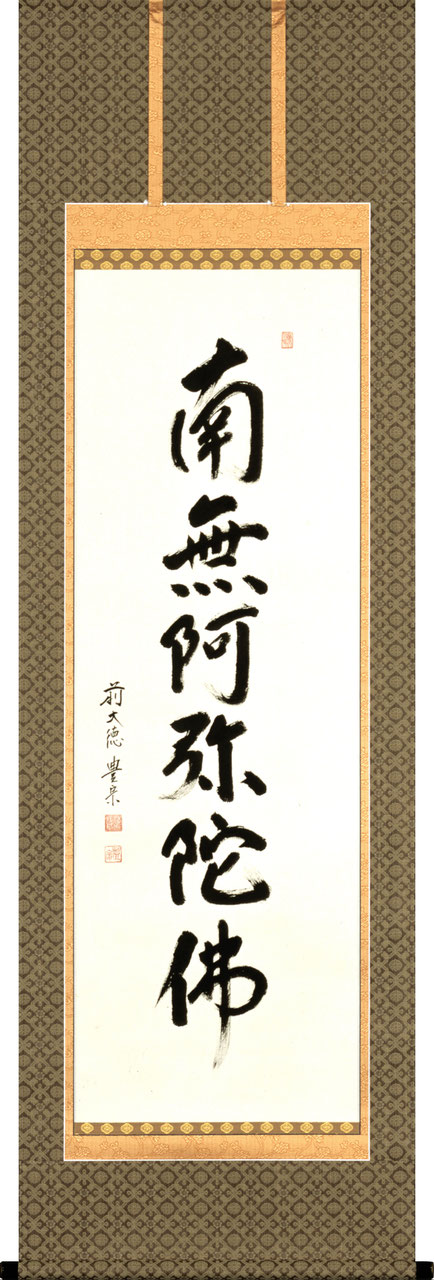 南無阿弥陀佛
前大徳 豊宗